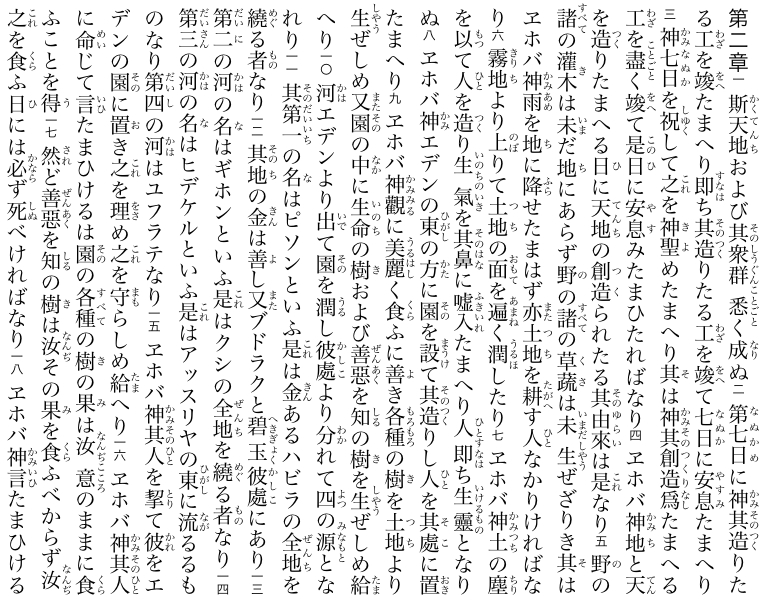 第二章一 斯天地および其衆群 悉く成ぬ二 第七日に神其造りた
る工を竣たまへり即ち其造りたる工を竣て七日に安息たまへり
三 神七日を祝して之を神聖めたまへり其は神其創造爲たまへる
工を盡く竣て是日に安息みたまひたればなり四 ヱホバ神地と天
を造りたまへる日に天地の創造られたる其由來は是なり五 野の
諸の灌木は未だ地にあらず野の諸の草蔬は未 生ぜざりき其は
ヱホバ神雨を地に降せたまはず亦土地を耕す人なかりければな
り六 霧地より上りて土地の面を遍く潤したり七 ヱホバ神土の塵
を以て人を造り生 氣を其鼻に嘘入たまへり人即ち生靈となり
ぬ八 ヱホバ神エデンの東の方に園を設て其造りし人を其處に置
たまへり九 ヱホバ神觀に美麗く食ふに善き各種の樹を土地より
生ぜしめ又園の中に生命の樹および善惡を知の樹を生ぜしめ給
へり一〇 河エデンより出て園を潤し彼處より分れて四の源とな
れり一一 其第一の名はピソンといふ是は金あるハビラの全地を
繞る者なり一二 其地の金は善し又ブドラクと碧玉彼處にあり一三
第二の河の名はギホンといふ是はクシの全地を繞る者なり一四
第三の河の名はヒデケルといふ是はアッスリヤの東に流るるも
のなり第四の河はユフラテなり一五 ヱホバ神其人を挈て彼をエ
デンの園に置き之を理め之を守らしめ給へり一六 ヱホバ神其人
に命じて言たまひけるは園の各種の樹の果は汝 意のままに食
ふことを得一七 然ど善惡を知の樹は汝その果を食ふべからず汝
之を食ふ日には必ず死べければなり一八 ヱホバ神言たまひける